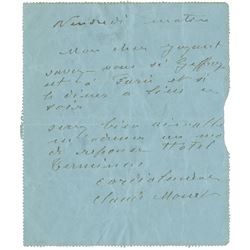 Vendredi matin
Mon cher Joyant
savez vous si Geffroy
est à Paris et si
le diner a lieu ce
soir
serez bien aimable
me donner un mot
de reponse Hotel
Terminus
cordialement
Claude Monet